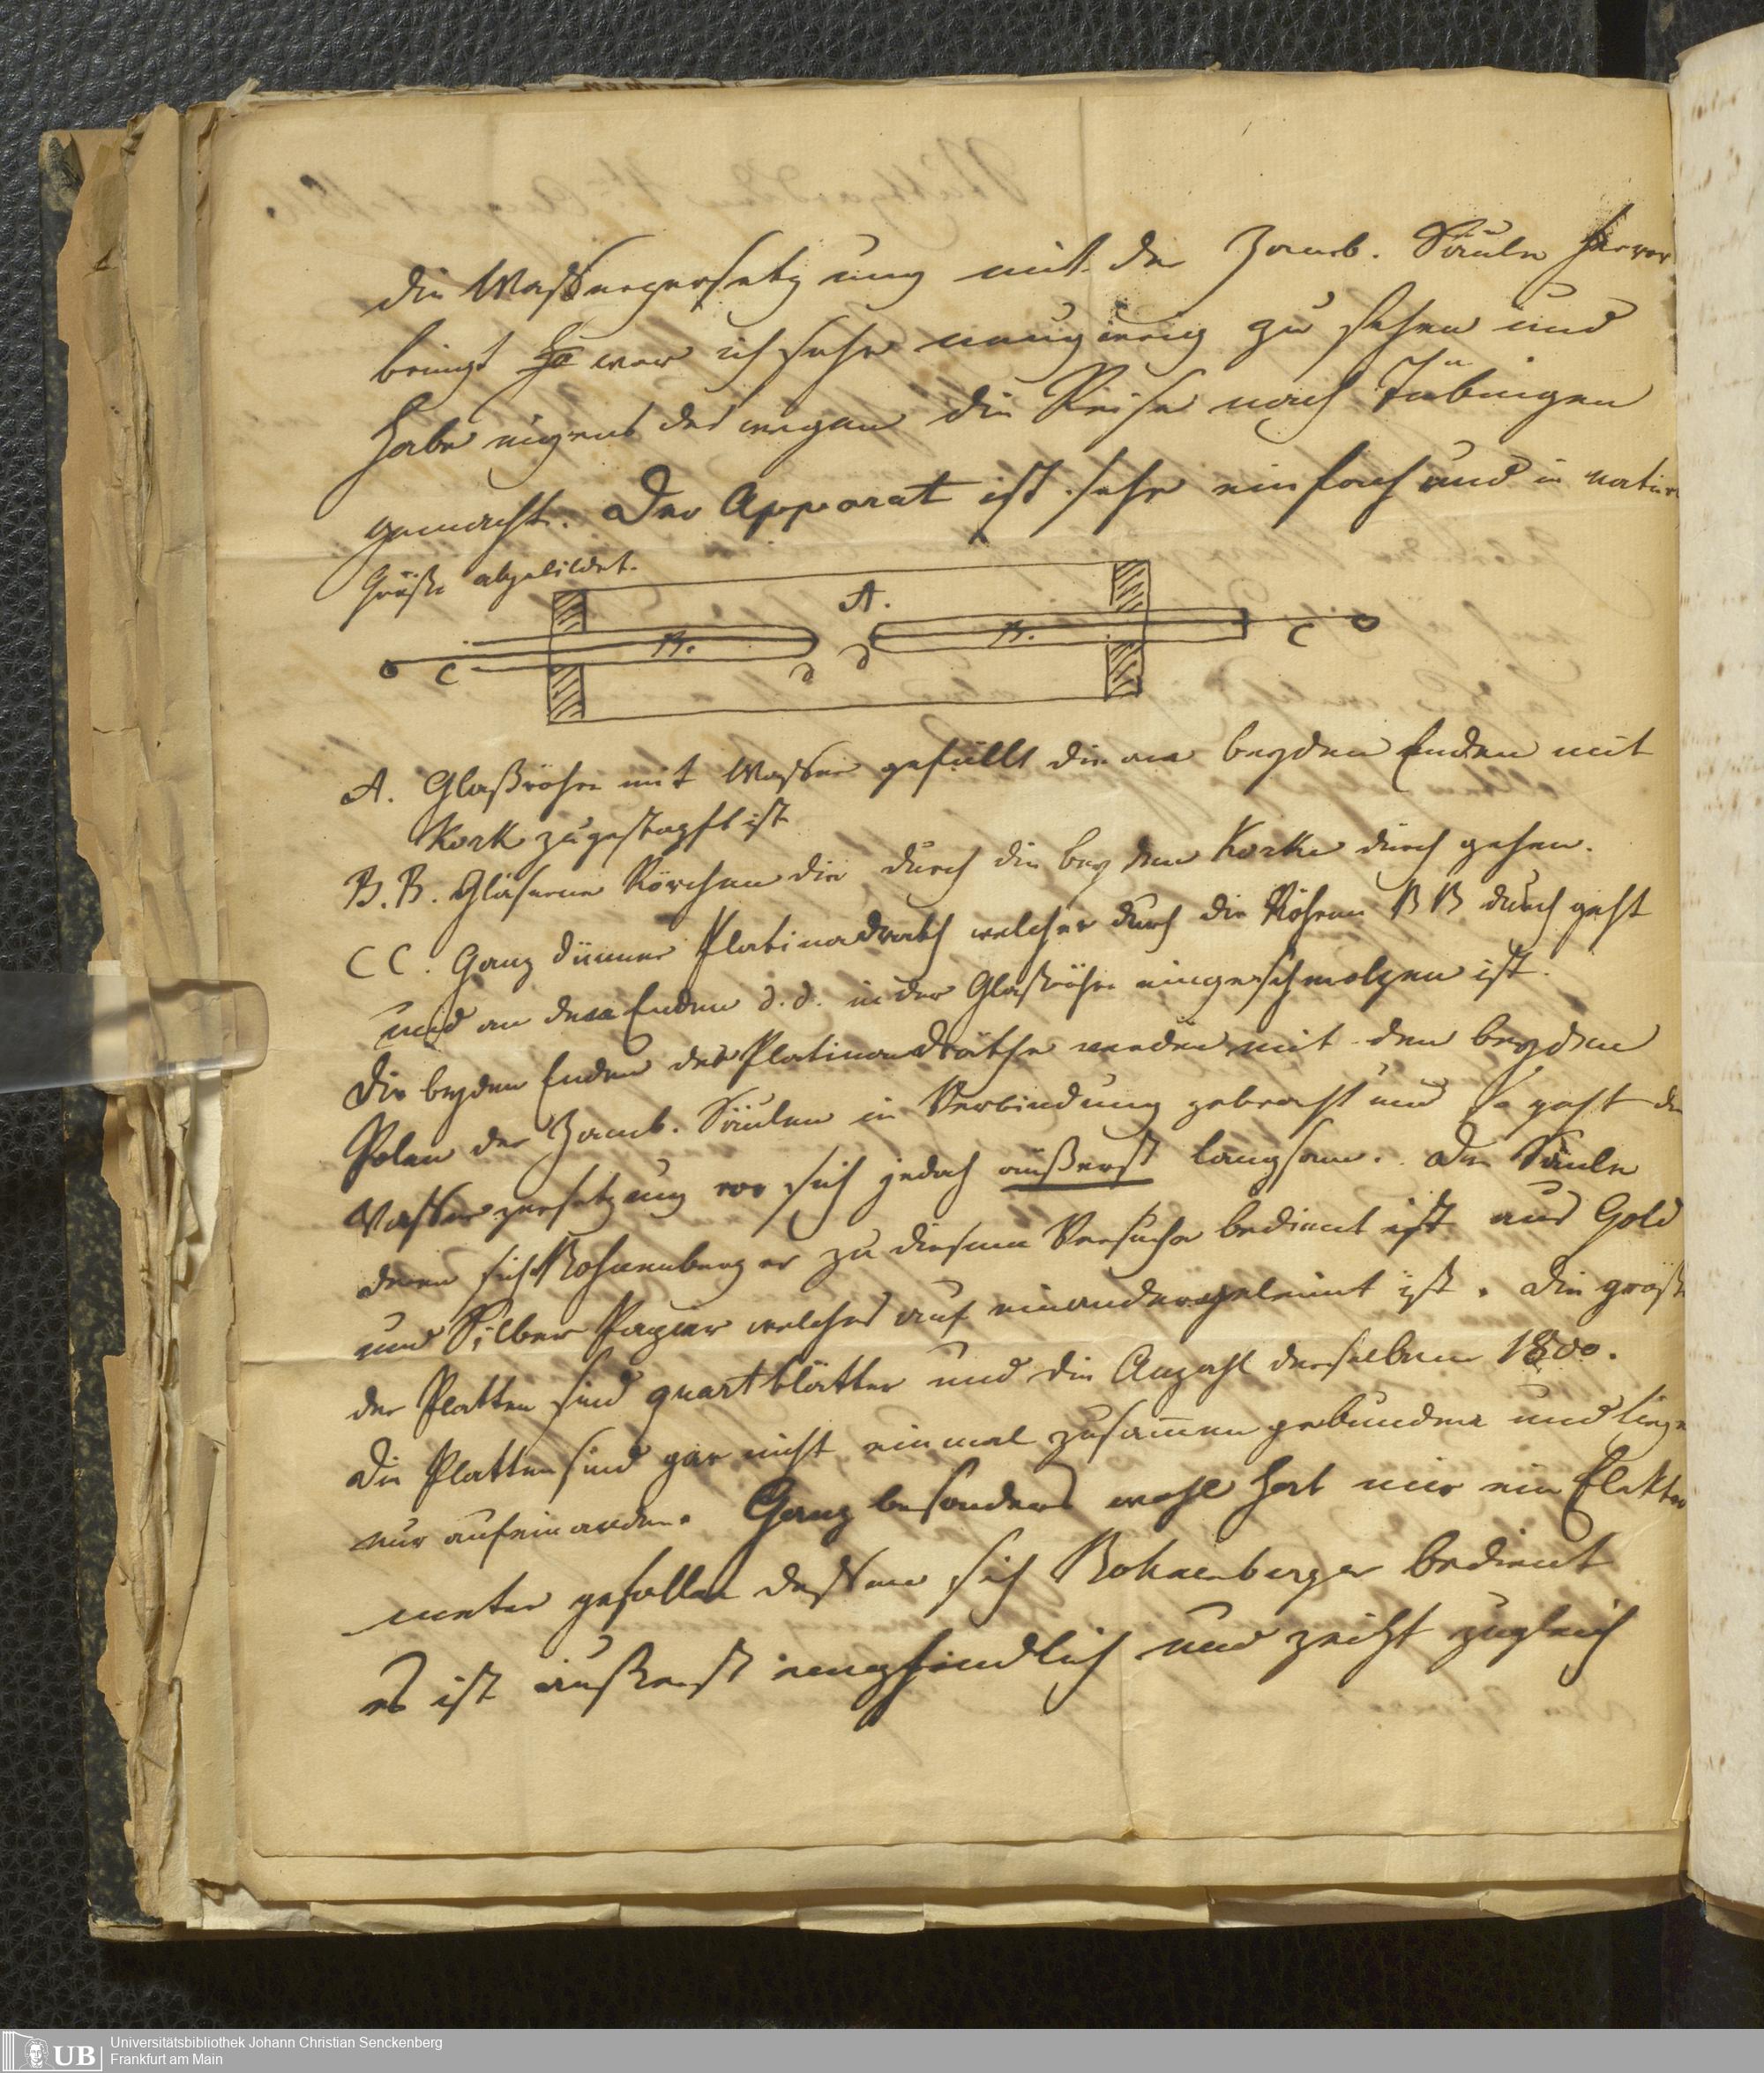 die Wasserzersetzung mit der Zamb. Säule hervor
bringt war ich sehr neugierig zu sehen und
habe eigens deswegen die Reise nach Tübingen
gemacht. Der Apparat ist sehr einfach und in natür
Größe abgebildet.
A.
B. B.
C d d C
A. Glaßröhre mit Wasser gefüllt die an beyden Enden mit
Kork zugestopft ist
B. B. Gläserne Rörchen die durch die beyden Korke durch gehen.
C C. Ganz dünner Platinadrath welcher durch die Röhren B B durch geht
und an den Enden d. d. in der Glaßröhre eingeschmolzen ist.
Die beyden Enden der Platinadräthe werden mit den beyden
Polen der Zamb. Säulen in Verbindung gebracht und so geht die
Wasserzersetzung vor sich jedoch äußerst langsam. Die Säule
deren sich Bohnenberger zu diesem Versuche bedient ist aus Gold
und Silber Papier welches auf einander geleimt ist. Die größe
der Platten sind quartblätter und die Anzahl derselben 1800.
Die Platten sind gar nicht einmal zusamen gebunden und liegen
nur aufeinander. Ganz besonders wohl hat mir ein Elektro
meter gefallen dessen sich Bohnenberger bedient
es ist äußerst empfindlich und zeicht zugleich
UB Universitätsbibliothek Johann Christian Senckenberg
Frankfurt am Main